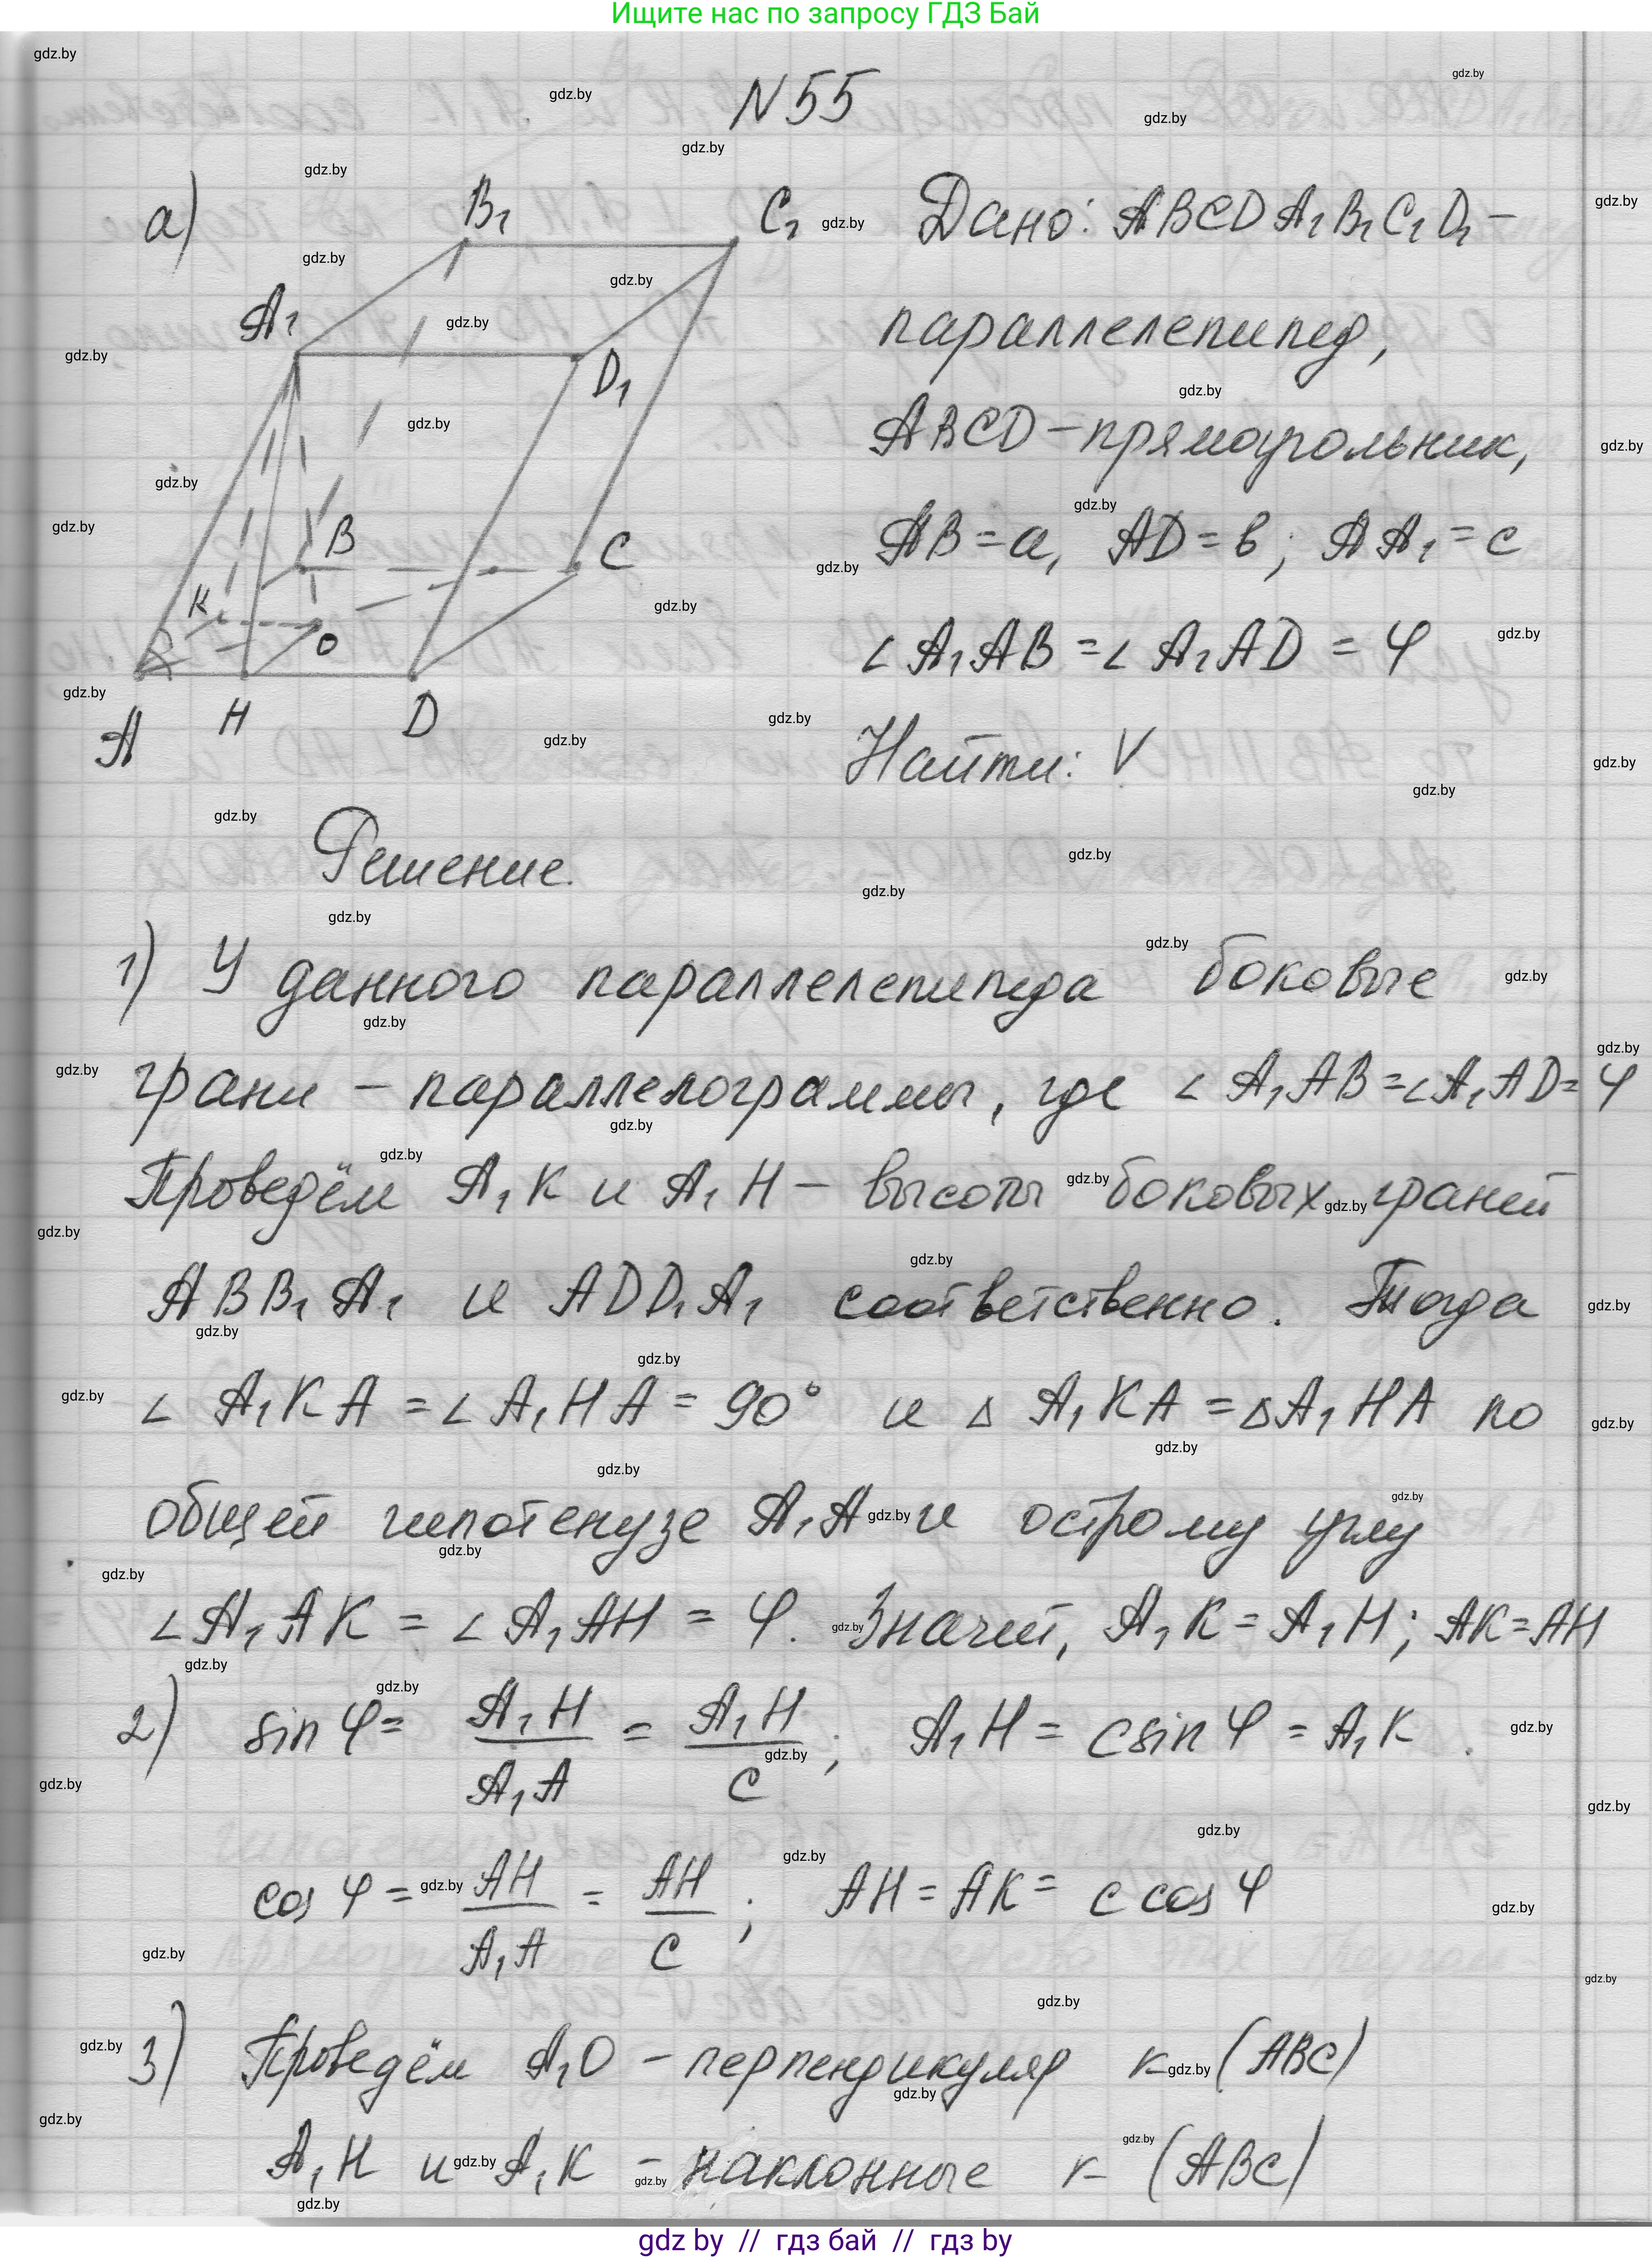 Ищите нас по запросу ГДЗ Бай
N 55
а)
B₁
C₁
A₁
D₁
B
C
K
O
A
H
D
Дано: ABCDA₁B₁C₁D₁ –
параллелепипед,
ABCD – прямоугольник,
AB = a, AD = в; AA₁ = c
∠ A₁AB = ∠ A₁AD = φ
Найти: V
Решение.
1) У данного параллелепипеда боковые
грани – параллелограммы, где ∠ A₁AB = ∠ A₁AD = φ
Проведём A₁K и A₁H – высоты боковых граней
ABB₁A₁ и ADD₁A₁ соответственно. Тогда
∠ A₁KA = ∠ A₁HA = 90° и Δ A₁KA = Δ A₁HA по
общей гипотенузе A₁A и острому углу
∠ A₁AK = ∠ A₁AH = φ. Значит, A₁K = A₁H; AK = AH
2) sin φ = A₁H / A₁A = A₁H / c; A₁H = c sin φ = A₁K.
cos φ = AH / A₁A = AH / c; AH = AK = c cos φ
3) Проведём A₁O – перпендикуляр к (ABC)
A₁H и A₁K – наклонные к (ABC)
gdz by // гдз бай // гдз by